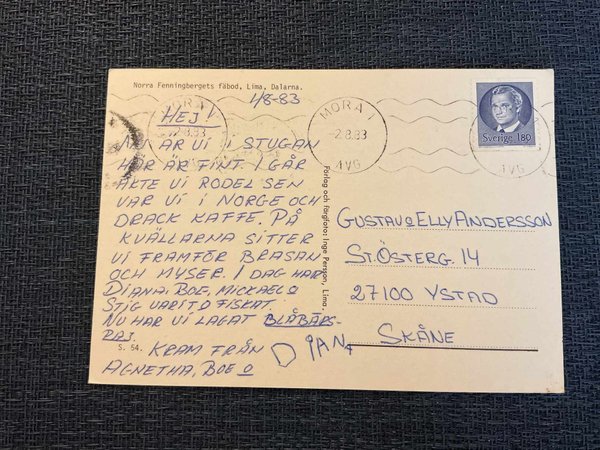 Norra Fenningbergets fäbod, Lima, Dalarna.
1/8-83
HEJ!
NU ÄR VI I STUGAN
HÄR ÄR FINT. I GÅR
ÅKTE VI RODEL SEN
VAR VI I NORGE OCH
DRACK KAFFE. PÅ
KVÄLLARNA SITTER
VI FRAMFÖR BRASAN
OCH MYSER. I DAG HAR
DIANA. BOE, MICKAEL O
STIG VARIT O FISKAT.
NU HAR VI LAGAT BLÅBÄRS-
PAJ.
KRAM FRÅN DIANA
AGNETHA, BOE O
S. 54.
Förlag och färgfoto: Inge Persson, Lima.
MORA 1
-2.8.83
MORA 1
-2.8.83
AVG
AVG
Sverige 180
GUSTAV O ELLY ANDERSSON
ST. ÖSTERG. 14
27100 YSTAD
SKÅNE